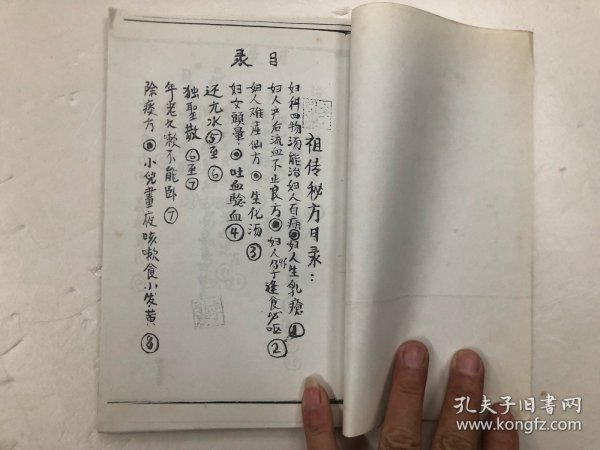 目录
祖传秘方目录：
妇科四物汤能治妇人百病●妇人生乳疮①
妇人产后流血不止良方●妇人孕逢食必呕②
妇人难产仙方●生化汤③
妇女头晕●吐血验血④
还元水⑤至⑥
独圣散⑥至⑦
年老久嗽不能卧⑦
除痰方●小兒晝夜咳嗽食小发黄⑧
孔夫子旧书网
www.kongfz.com